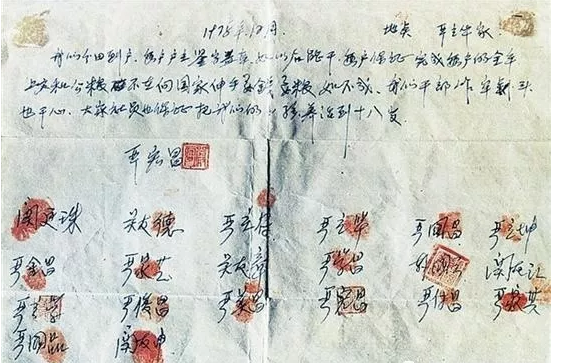 1978年12月 地点 严立华家
我们分田到户，每户户主签字盖章，如以后能干，每户保证完成每户的全年
上交和公粮 不在向国家伸手要钱要粮，如不成，我们干部作牢杀头
也干心，大家社员也保证把我们的小孩养活到十八岁。
严宏昌
关廷珠 关友德 严立付 严立华 严国昌 严立坤
严金昌 严家芝 关友章 严学昌 韩国云 关友江
严立学 严俊昌 严美昌 严宏昌 严付昌 严家其
严国品 关友申